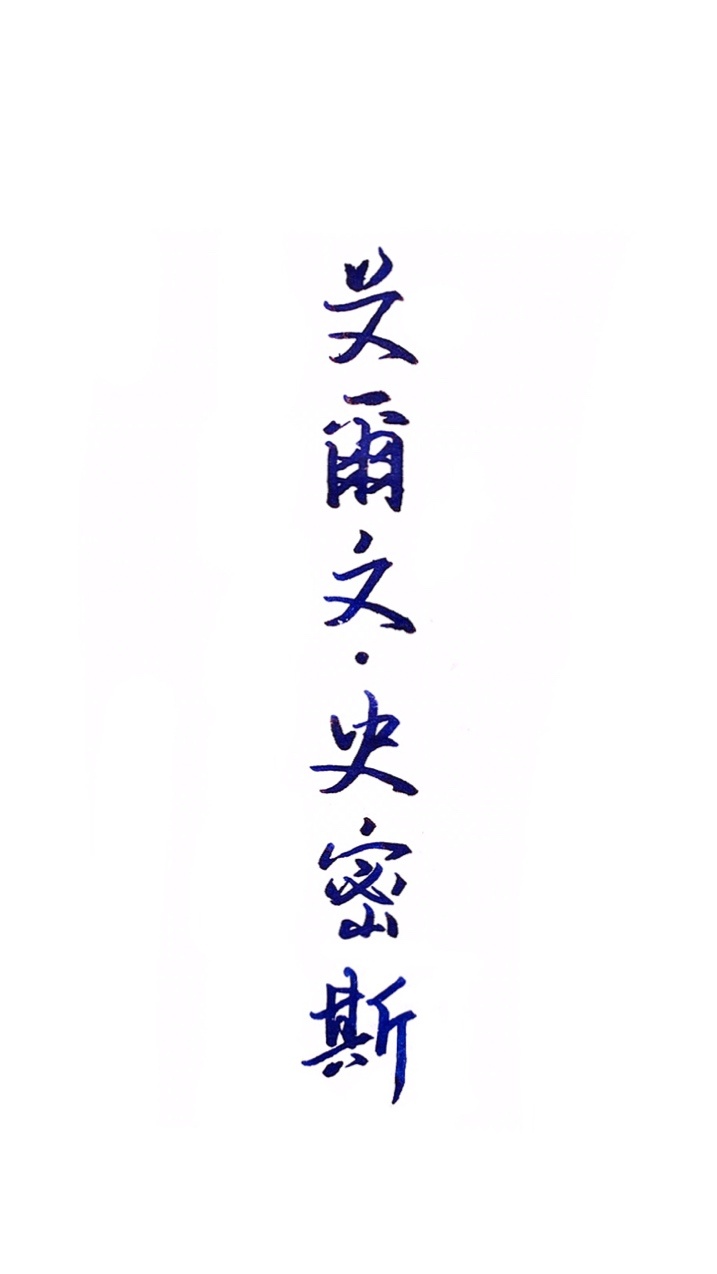 艾爾文·史密斯